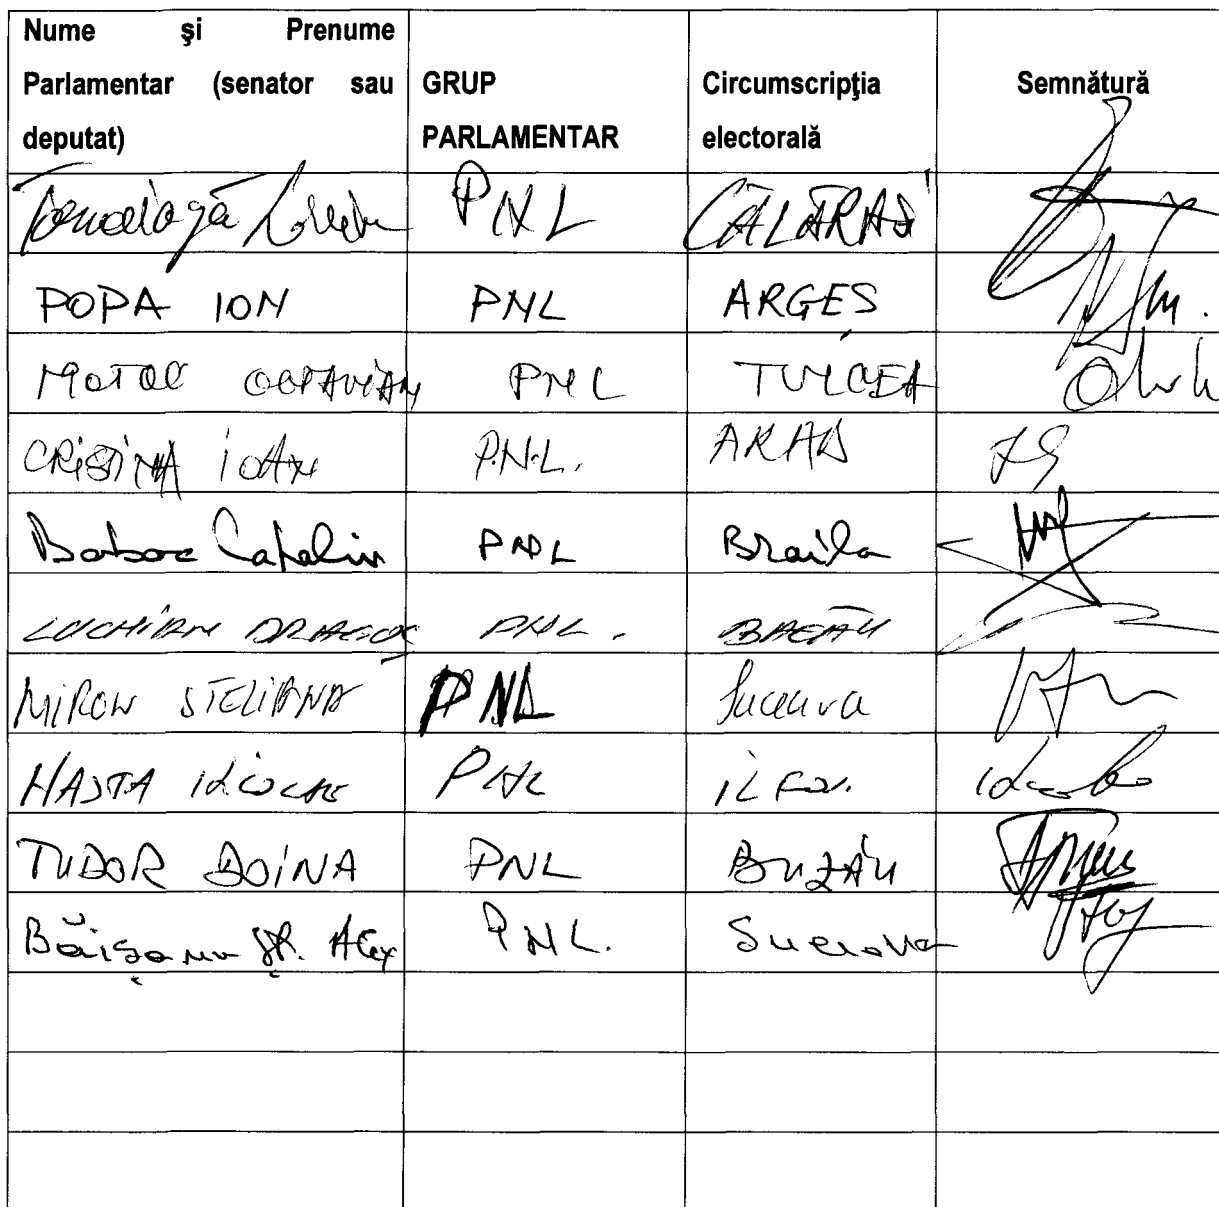 Nume şi Prenume
Parlamentar (senator sau
deputat)
GRUP
PARLAMENTAR
Circumscripţia
electorală
Semnătură
PNL CĂLĂRAŞI
POPA ION PNL ARGES
MOTOC OCTAVIAN PNL TULCEA
CRISTINA IOAN P.N.L. ARAD
Boboc Catalin PNL Braila
LUCHIAN DRAGOS PNL. BACĂU
MIRON STELIANA PNL Suceava
PNL ILFOV.
TUDOR DOINA PNL BUZĂU
Băişanu Şt. Alex PNL. Suceava